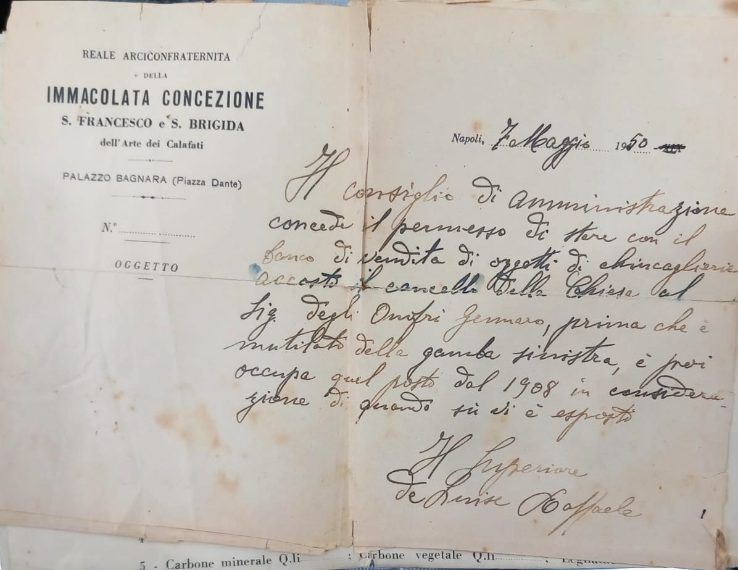 REALE ARCICONFRATERNITA
DELLA
IMMACOLATA CONCEZIONE
S. FRANCESCO e S. BRIGIDA
dell'Arte dei Calafati
PALAZZO BAGNARA (Piazza Dante)
N.º
OGGETTO
Napoli, 7 Maggio 1950
Il consiglio di Amministrazione
concede il permesso di stare con il
banco di vendita di oggetti di chincaglierie
accosto il cancello della Chiesa al
Sig. degli Onofri Gennaro, prima che è
mutilato della gamba sinistra, è poi
occupa quel posto dal 1908 in considera-
zione di quando su vi è esposto
Il Superiore
de Luise Raffaele
5 - Carbone minerale Q.li ; Carbone vegetale Q.li ;